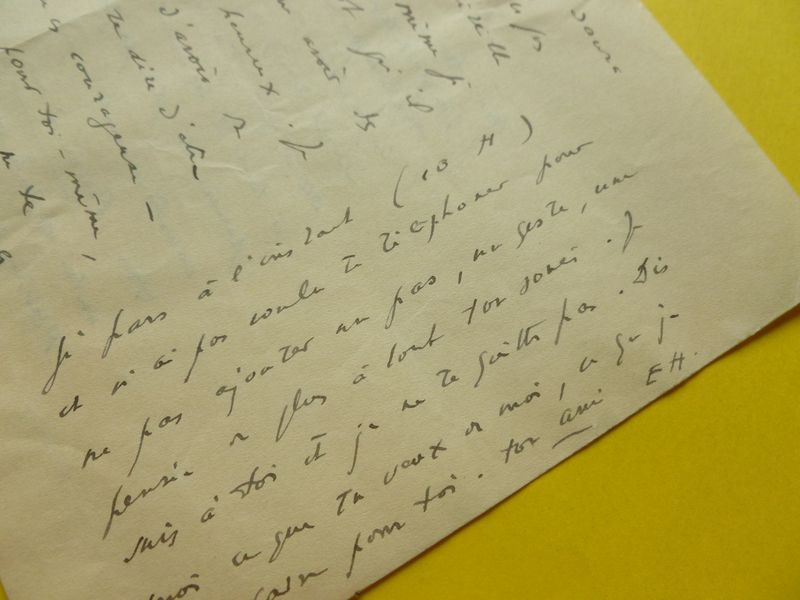 même
heureux . Je
d'avoir
te dire d'être
courageuse -
pour toi - même,
Je pars à l'instant (10 H)
et n'ai pas voulu te téléphoner pour
ne pas ajouter un pas, un geste, une
pensée de plus à tout ton souci. Je
suis à toi et je ne te quitte pas. Dis
moi ce que tu veux de moi, ce que je
pour toi. ton ami EH.